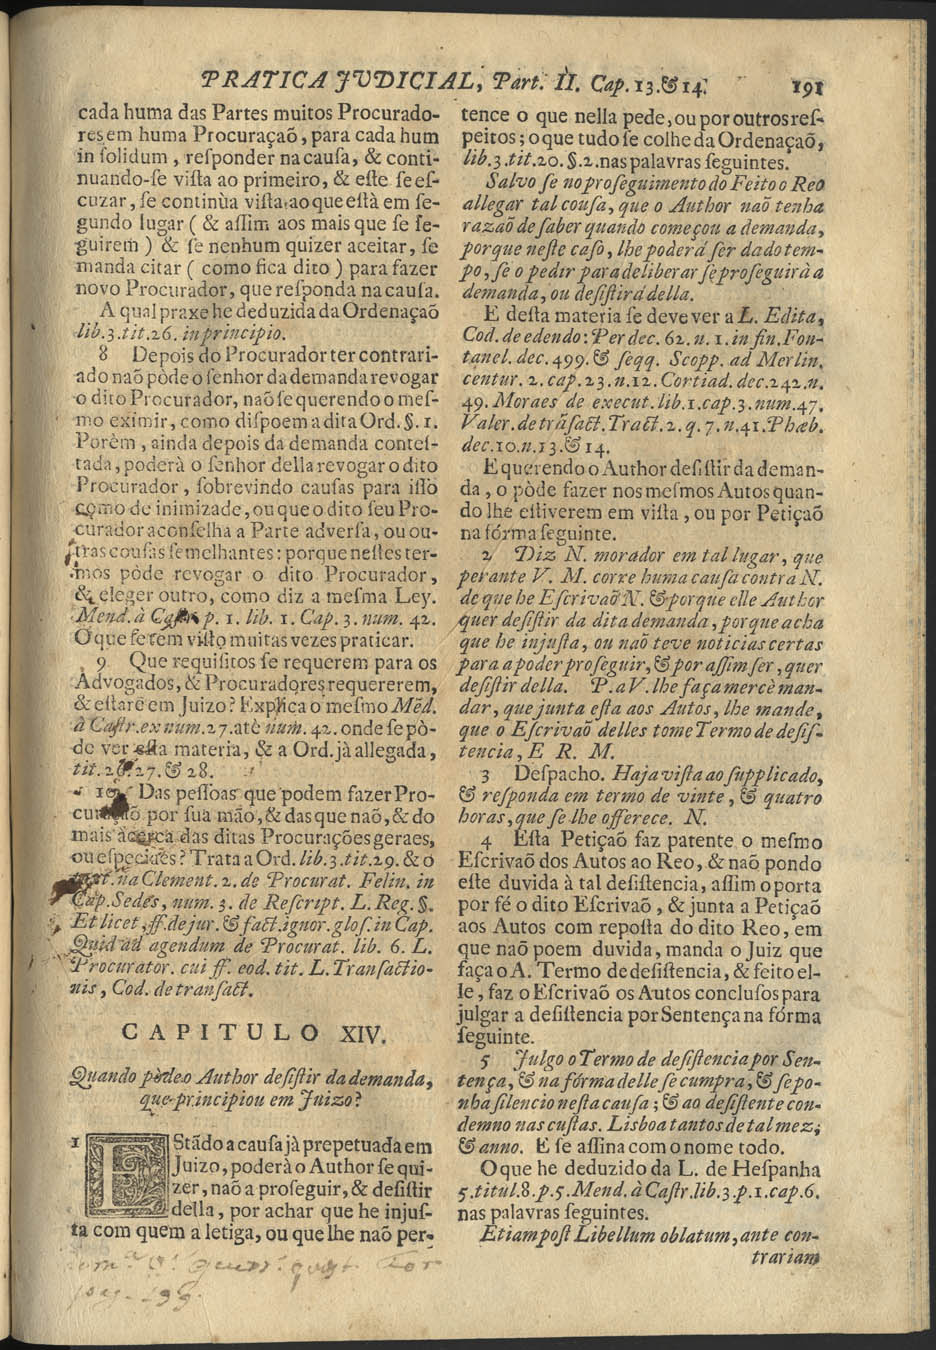 PRATICA JVDICIAL, Part. II. Cap. 13. & 14. 191
cada huma das Partes muitos Procurado-
res em huma Procuraçaõ, para cada hum
in ſolidum, reſponder na cauſa, & conti-
nuando-ſe viſta ao primeiro, & eſte ſe eſ-
cuzar, ſe continùa viſta ao que eſtà em ſe-
gundo lugar ( & aſſim aos mais que ſe ſe-
guirem ) & ſe nenhum quizer aceitar, ſe
manda citar ( como fica dito ) para fazer
novo Procurador, que reſponda na cauſa.
A qual praxe he deduzida da Ordenaçaõ
lib. 3. tit. 26. in principio.
8 Depois do Procurador ter contrari-
ado naõ pòde o ſenhor da demanda revogar
o dito Procurador, naõ ſe querendo o meſ-
mo eximir, como diſpoem a dita Ord. §. 1.
Porèm, ainda depois da demanda conteſ-
tada, poderà o ſenhor della revogar o dito
Procurador, ſobrevindo cauſas para iſſo
como de inimizade, ou que o dito ſeu Pro-
curador aconſelha a Parte adverſa, ou ou-
tras couſas ſemelhantes: porque neſtes ter-
mos pòde revogar o dito Procurador,
& eleger outro, como diz a meſma Ley.
Mend. à Caſtr. p. 1. lib. 1. Cap. 3. num. 42.
O que ſe tem viſto muitas vezes praticar.
9 Que requiſitos ſe requerem para os
Advogados, & Procuradores requererem,
& eſtarem em Juizo? Explica o meſmo Mẽd.
à Caſtr. ex num. 27. atè num. 42. onde ſe pò-
de ver eſta materia, & a Ord. jà allegada,
tit. 26. 27. & 28.
10 Das peſſoas que podem fazer Pro-
curaçaõ por ſua mão, & das que naõ, & do
mais àcerca das ditas Procurações geraes,
ou eſpeciaes? Trata a Ord. lib. 3. tit. 29. & o
text. na Clement. 2. de Procurat. Felin. in
Cap. Sedes, num. 3. de Reſcript. L. Reg. §.
Et licet, ff. de jur. & fact. ignor. gloſ. in Cap.
Quid ad agendum de Procurat. lib. 6. L.
Procurator. cui ff. eod. tit. L. Tranſactio-
nis, Cod. de tranſact.
CAPITULO XIV.
Quando pòde o Author deſiſtir da demanda,
que principiou em Juizo?
1 EStãdo a cauſa jà prepetuada em
Juizo, poderà o Author ſe qui-
zer, naõ a proſeguir, & deſiſtir
della, por achar que he injuſ-
ta com quem a letiga, ou que lhe naõ per-
tence o que nella pede, ou por outros reſ-
peitos; o que tudo ſe colhe da Ordenaçaõ,
lib. 3. tit. 20. §. 2. nas palavras ſeguintes.
Salvo ſe no proſeguimento do Feito o Reo
allegar tal couſa, que o Author naõ tenha
razaõ de ſaber quando começou a demanda,
porque neſte caſo, lhe poderà ſer dado tem-
po, ſe o pedir para deliberar ſe proſeguirà a
demanda, ou deſiſtirà della.
E deſta materia ſe deve ver a L. Edita,
Cod. de edendo: Per dec. 62. n. 1. in fin. Fon-
tanel. dec. 499. & ſeqq. Scopp. ad Merlin.
centur. 2. cap. 23. n. 12. Cortiad. dec. 242. n.
49. Moraes de execut. lib. 1. cap. 3. num. 47.
Valer. de trãſact. Tract. 2. q. 7. n. 41. Phæb.
dec. 10. n. 13. & 14.
E querendo o Author deſiſtir da deman-
da, o pòde fazer nos meſmos Autos quan-
do lhe eſtiverem em viſta, ou por Petiçaõ
na fórma ſeguinte.
2 Diz N. morador em tal lugar, que
perante V. M. corre huma cauſa contra N.
de que he Eſcrivaõ N. & porque elle Author
quer deſiſtir da dita demanda, porque acha
que he injuſta, ou naõ teve noticias certas
para a poder proſeguir, & por aſſim ſer, quer
deſiſtir della. P. a V. lhe faça mercè man-
dar, que junta eſta aos Autos, lhe mande,
que o Eſcrivaõ delles tome Termo de deſiſ-
tencia, E R. M.
3 Deſpacho. Haja viſta ao ſupplicado,
& reſponda em termo de vinte, & quatro
horas, que ſe lhe offerece. N.
4 Eſta Petiçaõ faz patente o meſmo
Eſcrivaõ dos Autos ao Reo, & naõ pondo
eſte duvida à tal deſiſtencia, aſſim o porta
por fé o dito Eſcrivaõ, & junta a Petiçaõ
aos Autos com repoſta do dito Reo, em
que naõ poem duvida, manda o Juiz que
faça o A. Termo de deſiſtencia, & feito el-
le, faz o Eſcrivaõ os Autos concluſos para
julgar a deſiſtencia por Sentença na fórma
ſeguinte.
5 Julgo o Termo de deſiſtencia por Sen-
tença, & na fórma delle ſe cumpra, & ſe po-
nha ſilencio neſta cauſa; & ao deſiſtente con-
demno nas cuſtas. Lisboa tantos de tal mez,
& anno. E ſe aſſina com o nome todo.
O que he deduzido da L. de Heſpanha
5. titul. 8. p. 5. Mend. à Caſtr. lib. 3. p. 1. cap. 6.
nas palavras ſeguintes.
Etiam poſt Libellum oblatum, ante con-
trariam